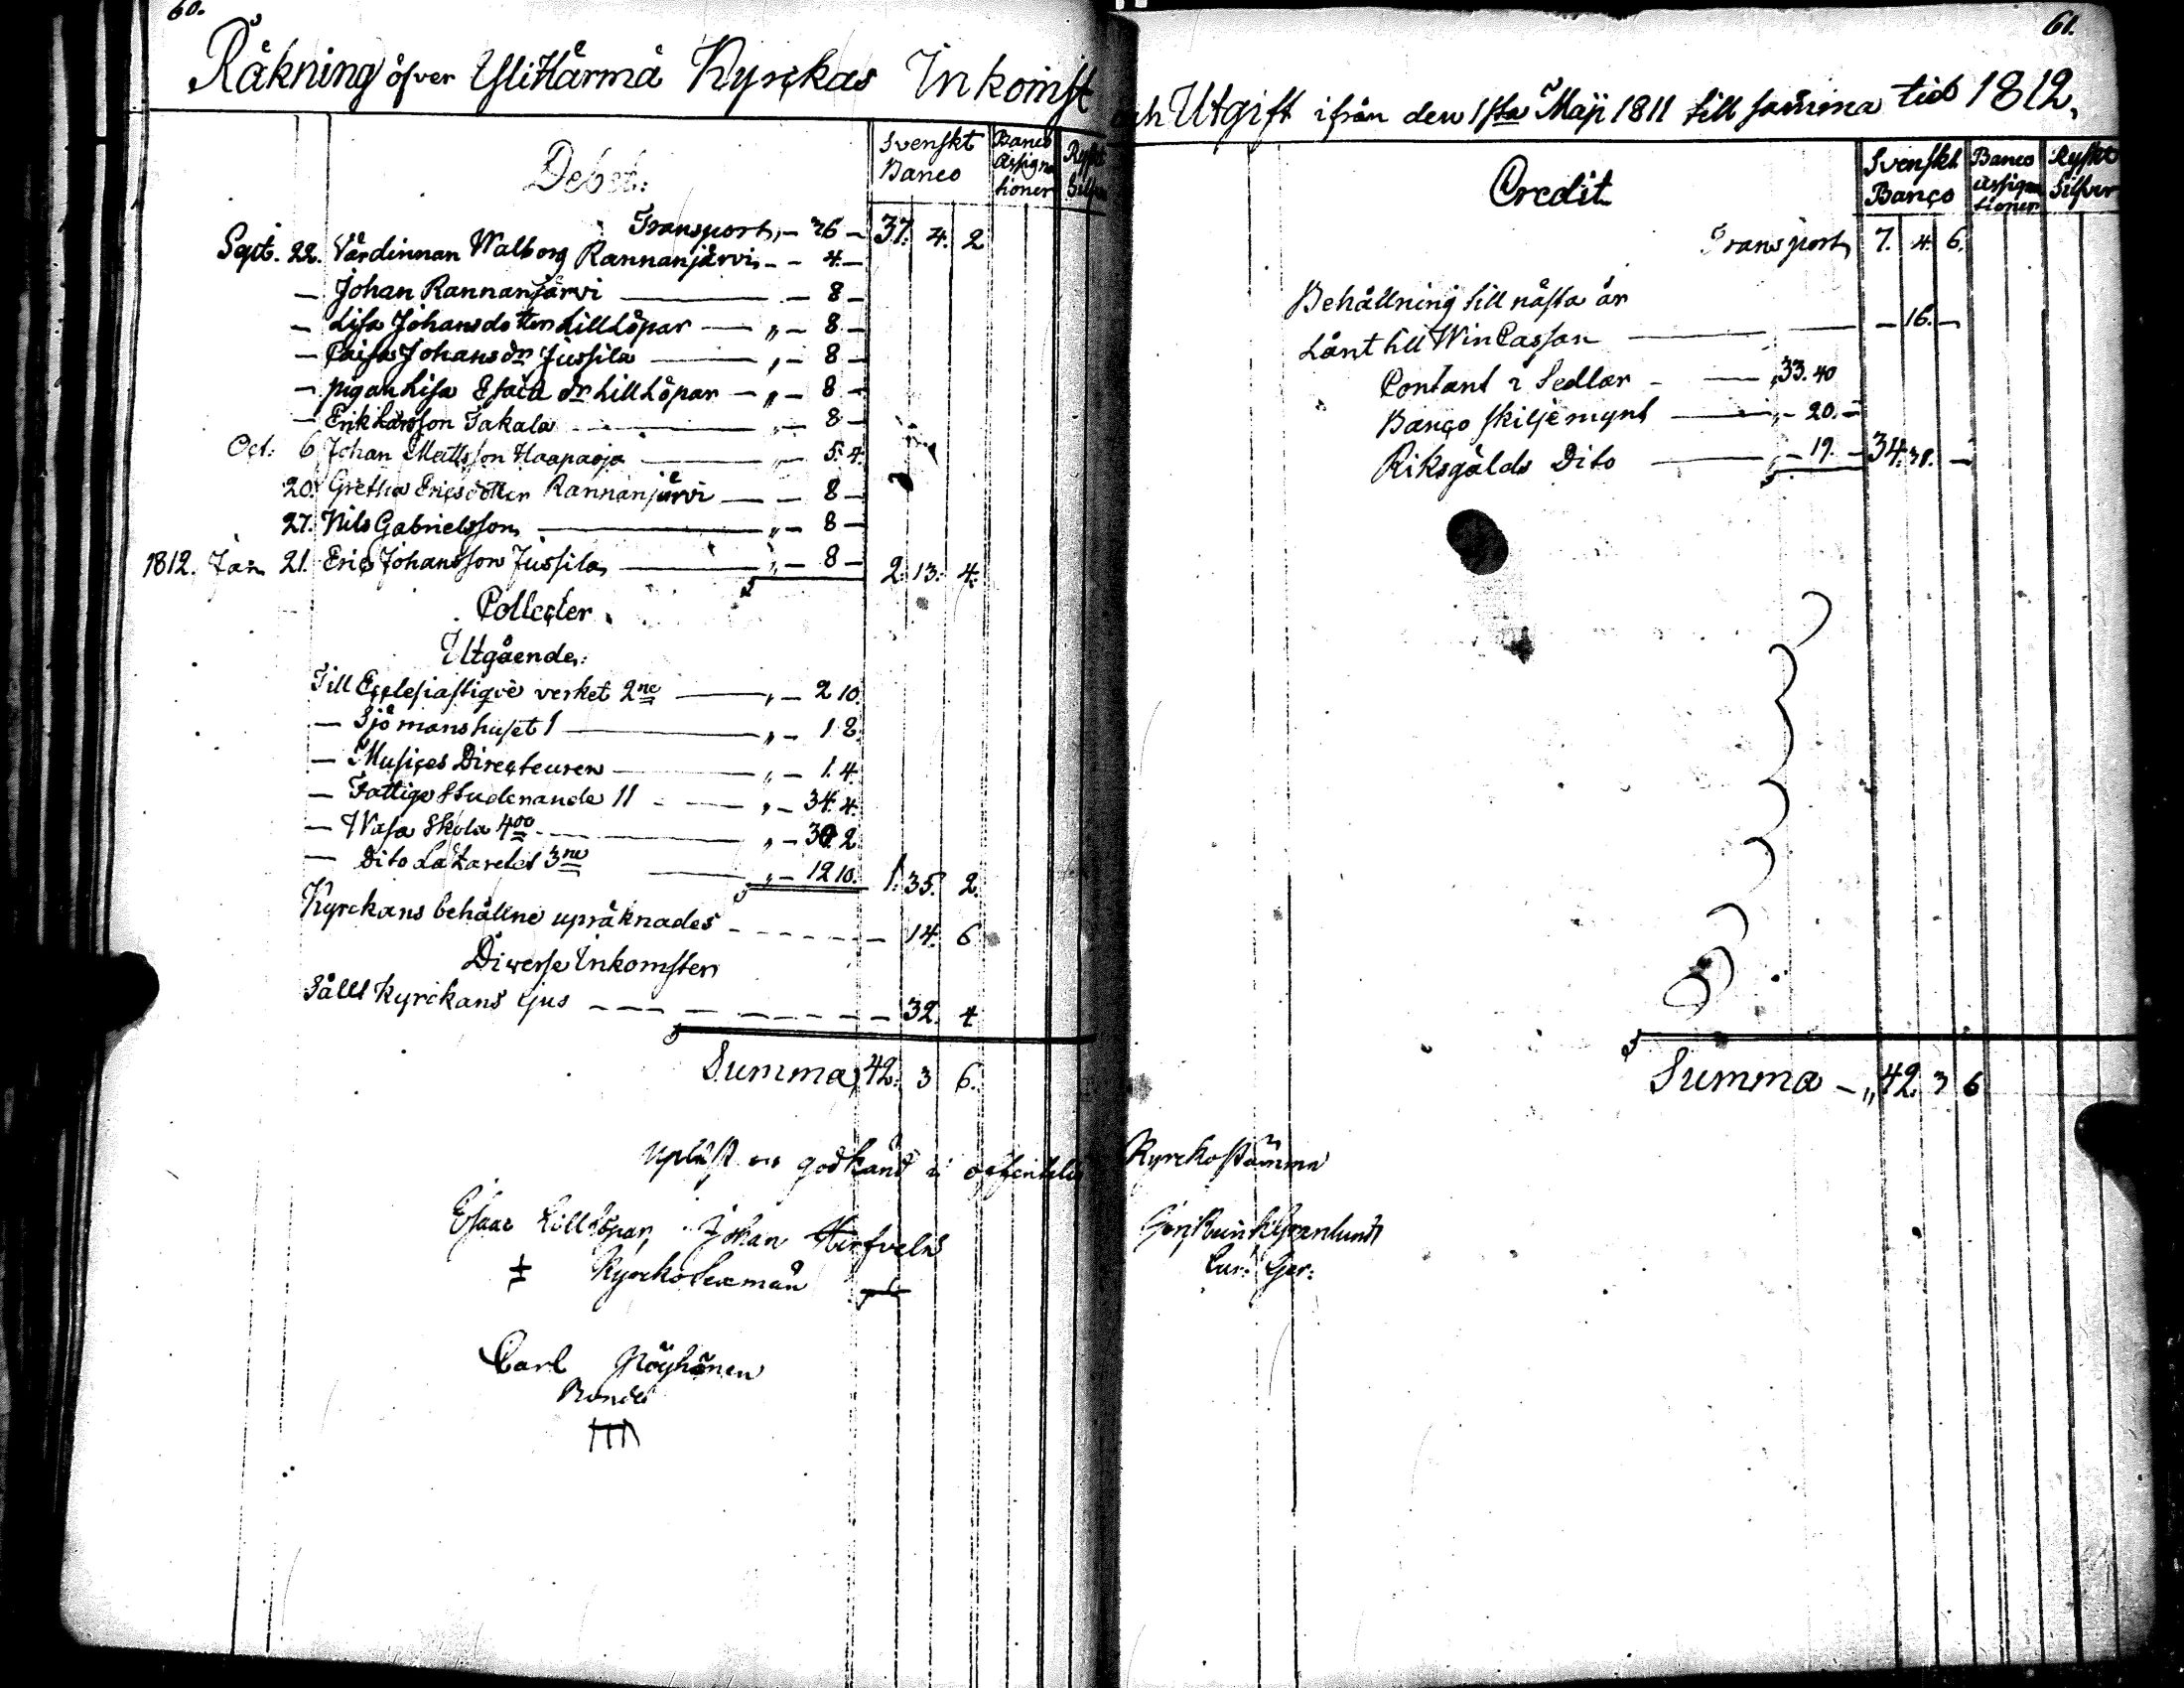 60.
Räkning öfver Ylihärmä Kyrckas Inkomst
Debet:
Svenskt Banco
Banco Assignationer
Ryskt Silfver
Transport, — 26 — 37. 4. 2
Sept. 22. Värdinnan Walborg Rannanjärvi — — 4. —
— Johan Rannanjärvi — — 8 —
— Lisa Johansdotter LillLöpar — „ — 8 —
— Caisa Johansdr Jussila — „ — 8 —
— pigan Lisa Esaiæ dr LillLöpar — „ — 8 —
— Erik Larsson Takala — „ — 8 —
Oct. 6 Johan Mattsson Haapaoja — „ — 5. 4.
20. Gretha Ericsdotter Rannanjärvi — — 8 —
27. Nils Gabrielsson — „ — 8 —
1812. Jan 21. Eric Johansson Jussila — „ — 8 — 2. 13. 4.
Collecter
Utgående:
Till Ecclesiastique verket 2ne — „ — 2 10.
— Sjömanshuset 1 — „ — 1 2.
— Musices Directeuren — „ — 1. 4.
— Fattige Studerande 11 — „ — 34. 4.
— Wasa Skola 4oo — „ — 30 2.
— Dito Lazarelet 3ne — „ — 12 10. 1. 35. 2.
Kyrckans behållne upräknades — 14. 6
Diverse Inkomster
Sålt Kyrckans ljus — 32. 4
Summa, 42. 3 6.
Upläst och godkänd i offentelig
Esaac Lilllöpar, Johan
Kyrcko Sexmän
Carl Köyhänen
Bonde
61.
och Utgift ifrån den 1sta Maji 1811 till samma tid 1812.
Credit
Svenskt Banco
Banco Assignationer
Ryskt Silfver
Transport, 7. 4. 6.
Behållning till nästa år
Lånt till Win Cassan — — 16. —
Contant i Sedlar — „ 33. 40
Banco skiljemynt — „ — 20. —
Riksgälds Dito — „ — 19. — 34. 31. —
Summa — „ 42. 3 6
Kyrckostämma
Granlund
Cur: Ger: